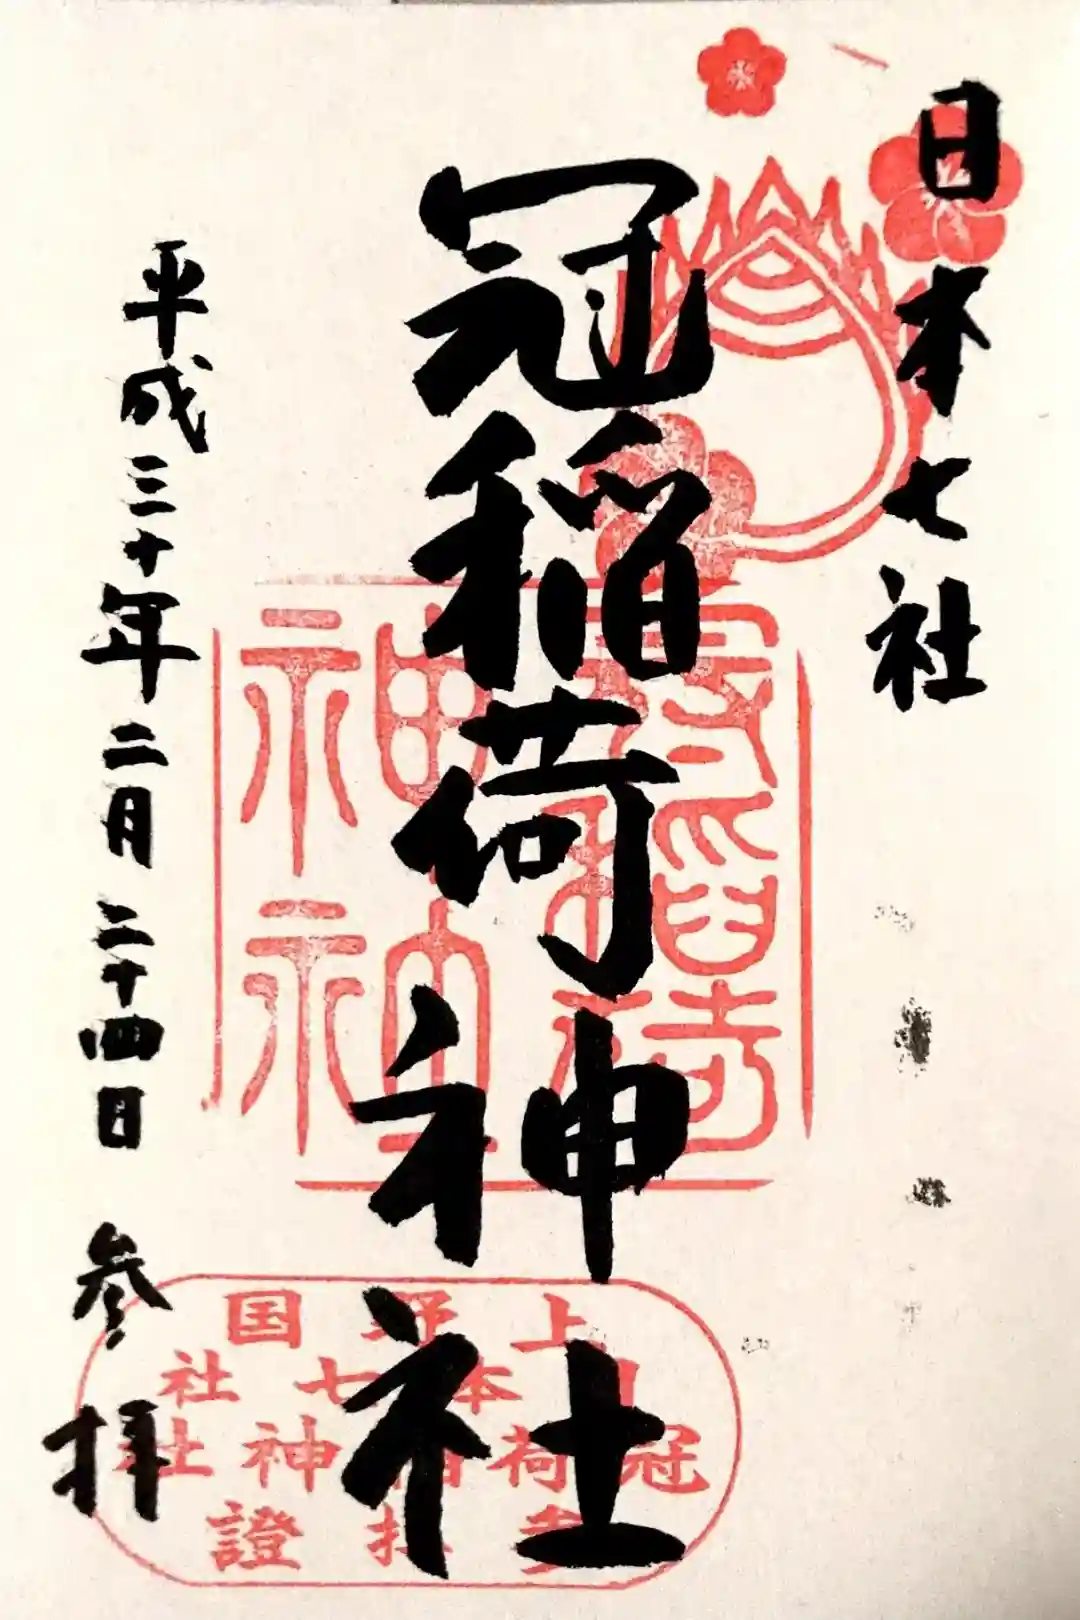 日本七社
冠稲荷神社
平成三十年二月二十四日 参拝
上野国
日本七社
冠稲荷神社
参拝證